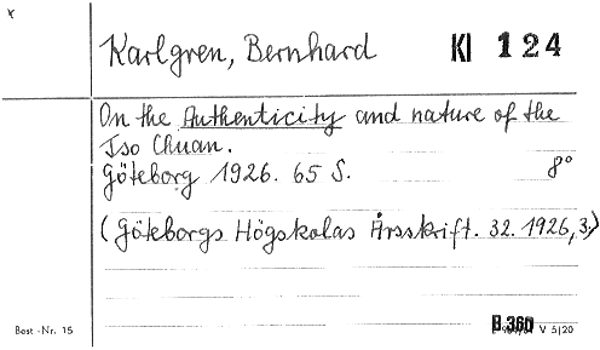 x
Karlgren, Bernhard KI 124
On the Authenticity and nature of the
Tso Chuan.
Göteborg 1926. 65 S. 8°
(Göteborgs Högskolas Årsskrift. 32. 1926,3.)
Best.-Nr. 15 B.360 V 5/20